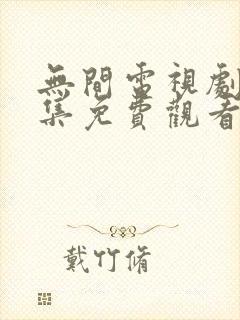 無間電視劇
集免費觀看
戴竹脩